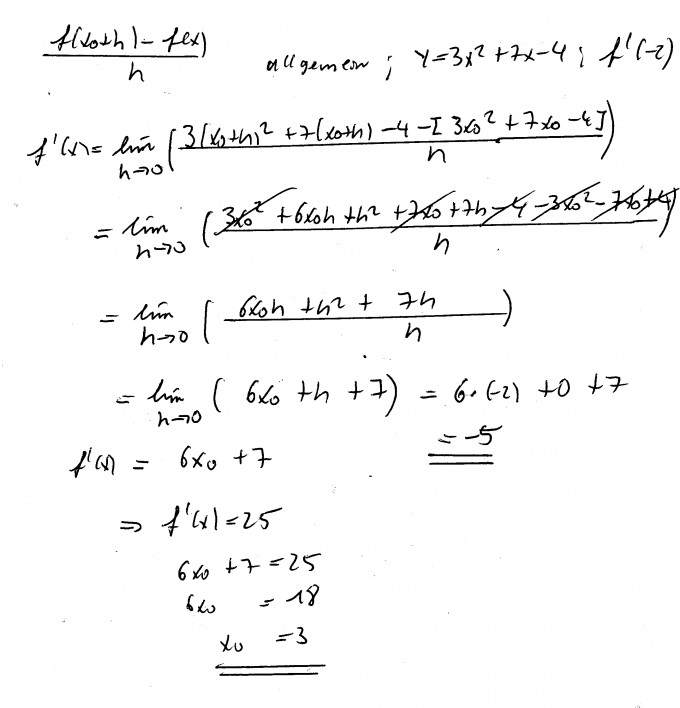 f(x₀+h) – f(x) / h allgemein ; Y=3x²+7x–4 ; f'(-2)
f'(x)= lim h→0 ( 3(x₀+h)² +7(x₀+h) –4 –[ 3x₀² +7x₀ –4] / h )
= lim h→0 ( 3x₀² +6x₀h +h² +7x₀ +7h –4 –3x₀² –7x₀ +4 / h )
= lim h→0 ( 6x₀h +h² + 7h / h )
= lim h→0 ( 6x₀ +h +7) = 6·(-2) +0 +7
= -5
f'(x) = 6x₀ +7
⇒ f'(x) =25
6x₀ +7 =25
6x₀ = 18
x₀ =3